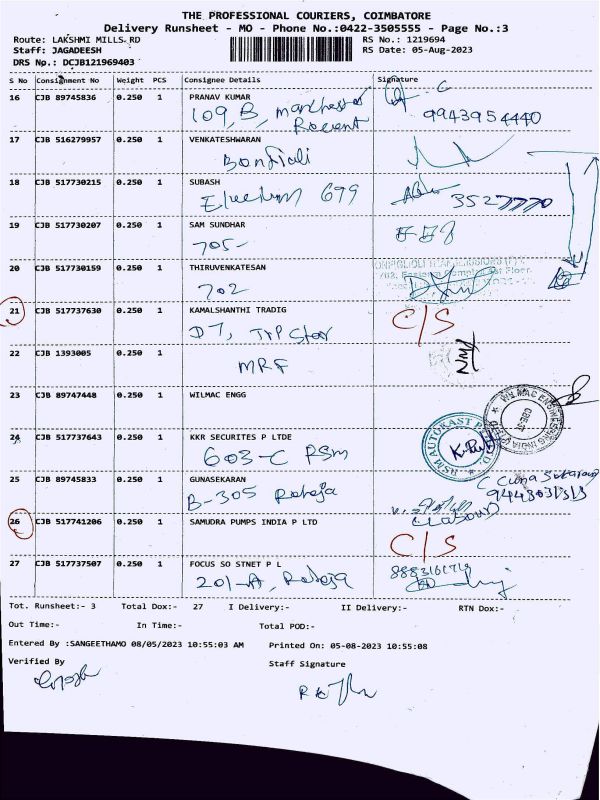 THE PROFESSIONAL COURIERS, COIMBATORE
Delivery Runsheet - MO - Phone No.:0422-3505555 - Page No.:3
Route: LAKSHMI MILLS RD RS No.: 1219694
Staff: JAGADEESH RS Date: 05-Aug-2023
DRS No.: DCJB121969403
S No Consignment No Weight PCS Consignee Details Signature
16 CJB 89745836 0.250 1 PRANAV KUMAR
109, B, 9943954440
17 CJB 516279957 0.250 1 VENKATESHWARAN
18 CJB 517730215 0.250 1 SUBASH
699
19 CJB 517730207 0.250 1 SAM SUNDHAR
705-
20 CJB 517730159 0.250 1 THIRUVENKATESAN
702
21 CJB 517737630 0.250 1 KAMALSHANTHI TRADIG
C/S
D7, TVP Star
22 CJB 1393005 0.250 1
MRF
23 CJB 89747448 0.250 1 WILMAC ENGG
24 CJB 517737643 0.250 1 KKR SECURITES P LTDE
603-C RSM
25 CJB 89745833 0.250 1 GUNASEKARAN
B-305 Raheja
26 CJB 517741206 0.250 1 SAMUDRA PUMPS INDIA P LTD
C/S
27 CJB 517737507 0.250 1 FOCUS SO STNET P L
201-A, Raheja
Tot. Runsheet:- 3 Total Dox:- 27 I Delivery:- II Delivery:- RTN Dox:-
Out Time:- In Time:- Total POD:-
Entered By :SANGEETHAMO 08/05/2023 10:55:03 AM Printed On: 05-08-2023 10:55:08
Verified By Staff Signature